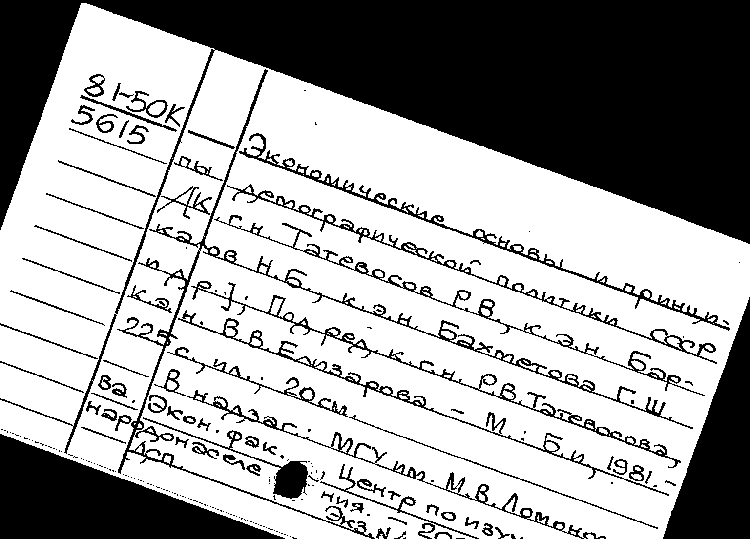 81-50К
5615
Экономические основы и принци-
пы демографической политики СССР
/ [к.г.н. Татевосов Р.В., к.э.н. Бар-
каlов Н.Б., к.э.н. Бахметова Г.Ш.
и др.]; Под ред. к.г.н. Р.В. Татевосова,
к.э.н. В.В. Елизарова. - М.: Б.и., 1981. -
225 с., ил.; 20 см.
В надзаг.: МГУ им. М.В. Ломоносо
ва. Экон. фак., Центр по изуч
народонаселения. - 200
Дсп. Экз. N